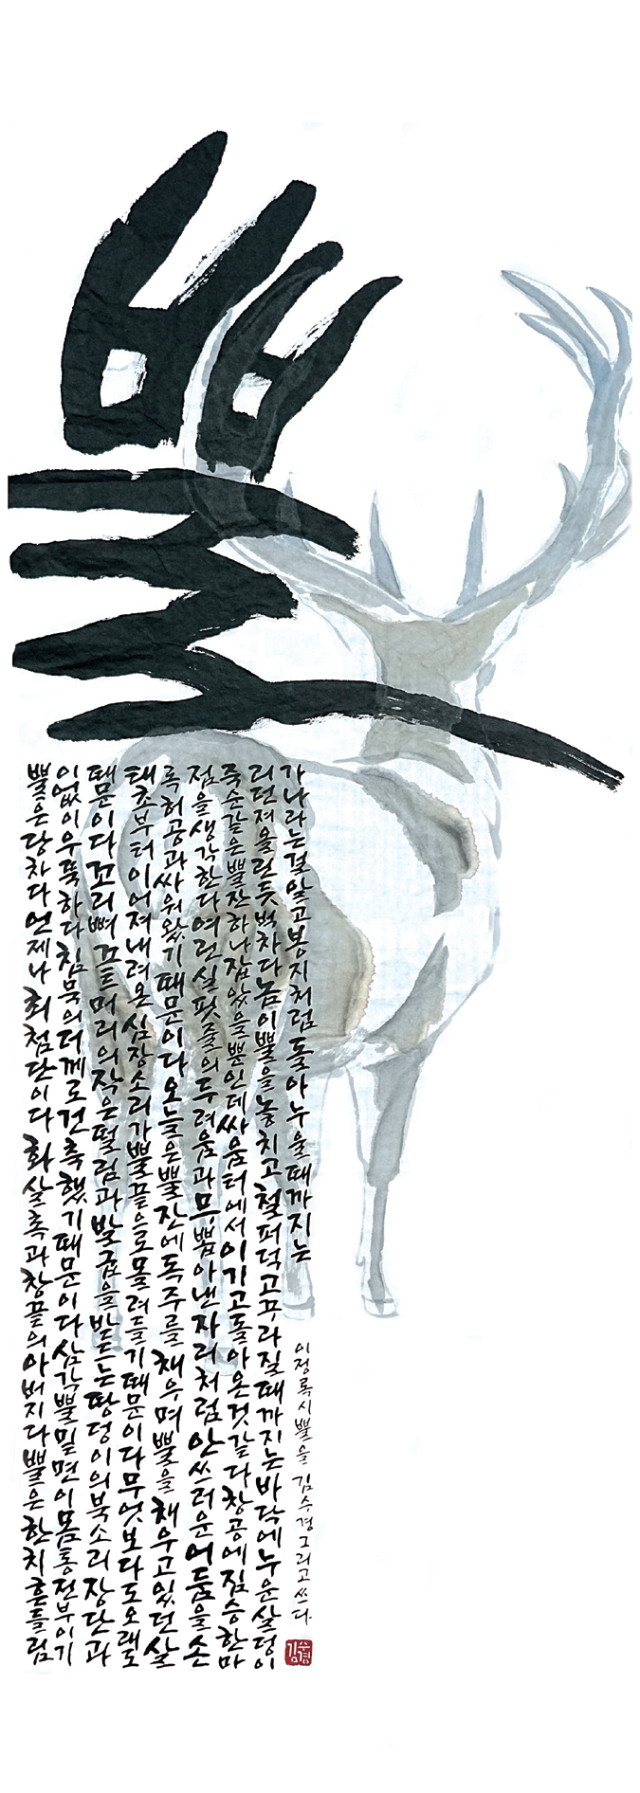 뿔
뿔은당차다언제나최첨단이다화살촉과창끝의아버지다뿔은한치흔들림
이없이우뚝하다침묵의더께로건축했기때문이다삼각뿔밑면이몸통전부이기
때문이다꼬리뼈끄트머리의작은떨림과발굽을받드는땅덩이의북소리장단과
태초부터이어져내려온심장소리가뿔끝으로몰려들기때문이다무엇보다도오래도
록허공과싸워왔기때문이다오늘은뿔잔에독주를채우며뿔을채우고있던살
점을생각한다여린실핏줄의두려움과무뽑아낸자리처럼안쓰러운어둠을손
죽순같은뿔잔하나잡았을뿐인데싸움터에서이기고돌아온것같다창공에짐승한마
리던져올린듯벅차다놈이뿔을놓치고철퍼덕고꾸라질때까지는바닥에누운살덩이
가나라는걸알고봉지처럼돌아누울때까지는
이정록시뿔을 김수경그리고쓰다.
김수경